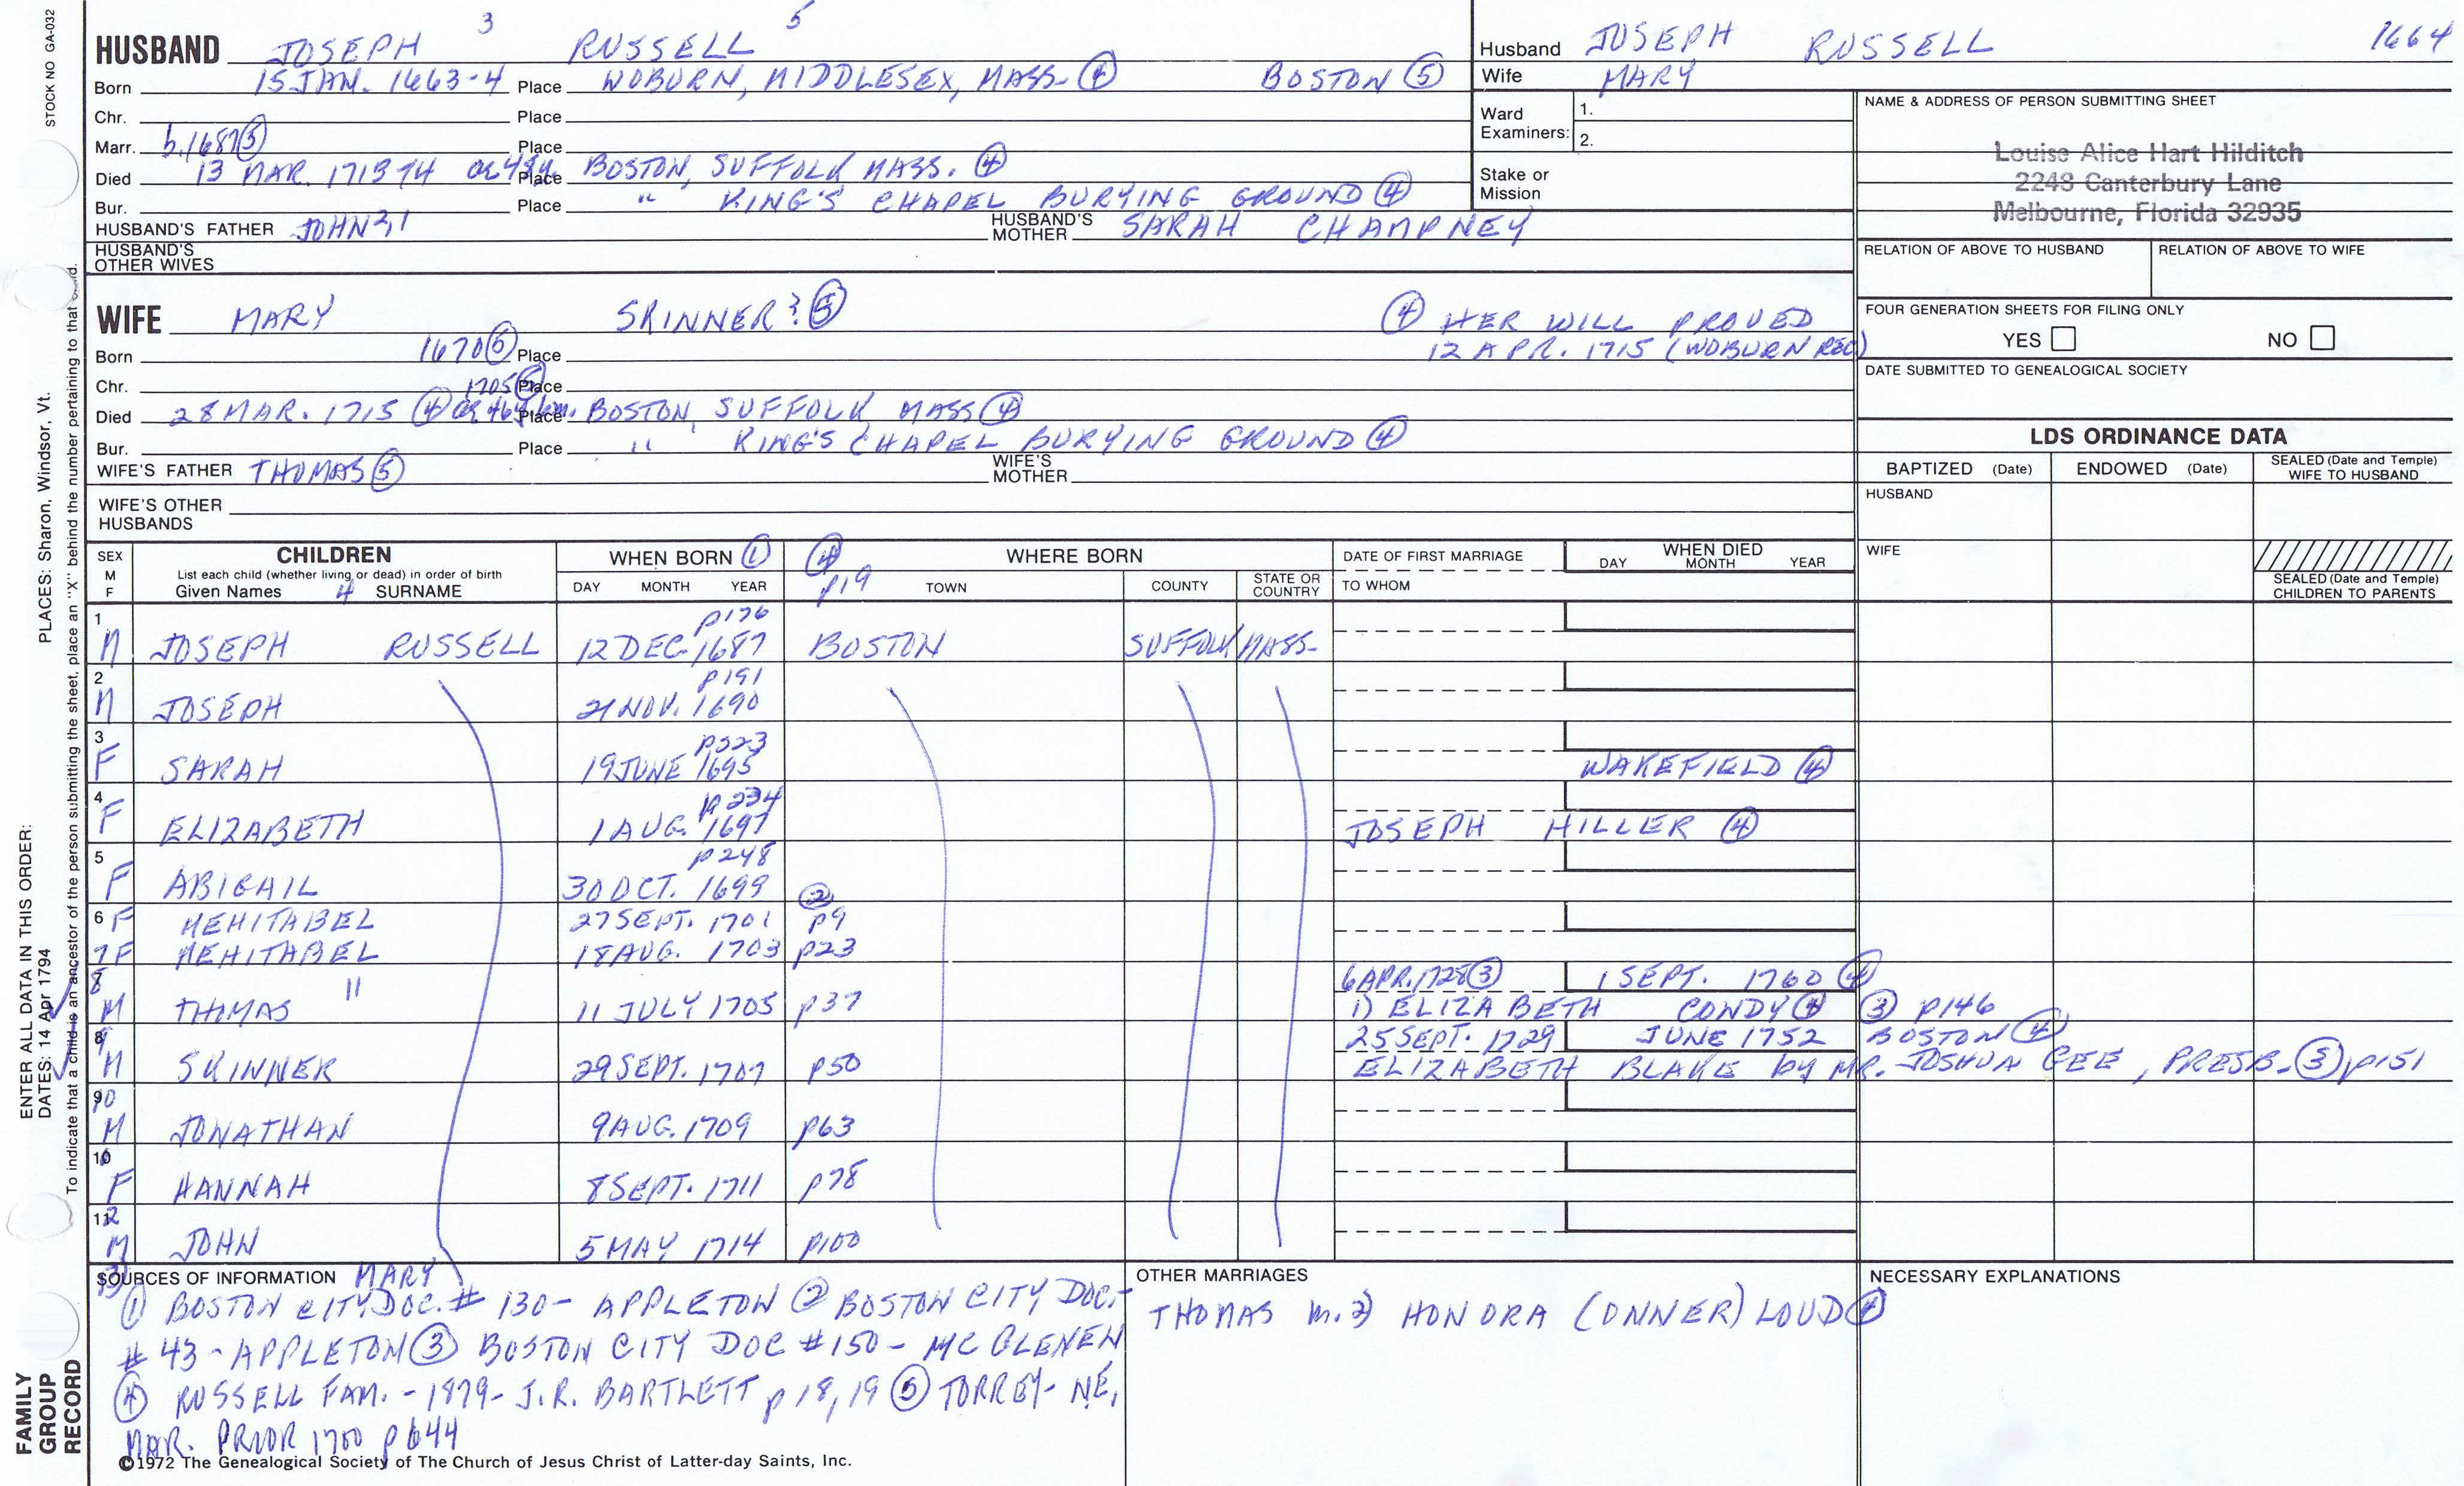 STOCK NO GA-032
3 5
HUSBAND JOSEPH RUSSELL
Born 15 JAN. 1663-4 Place WOBURN, MIDDLESEX, MASS. ④ BOSTON ⑤
Chr. Place
Marr. b. 1687 ⑤ Place
Died 13 MAR. 1713 14 Place BOSTON, SUFFOLK MASS. ④
Bur. Place " KING'S CHAPEL BURYING GROUND ④
HUSBAND'S FATHER JOHN 2,1 HUSBAND'S MOTHER SARAH CHAMPNEY
HUSBAND'S OTHER WIVES
Husband JOSEPH RUSSELL 1664
Wife MARY
Ward Examiners: 1.
2.
Stake or Mission
NAME & ADDRESS OF PERSON SUBMITTING SHEET
Louise Alice Hart Hilditch
2248 Canterbury Lane
Melbourne, Florida 32935
RELATION OF ABOVE TO HUSBAND RELATION OF ABOVE TO WIFE
FOUR GENERATION SHEETS FOR FILING ONLY
YES NO
DATE SUBMITTED TO GENEALOGICAL SOCIETY
WIFE MARY SKINNER? ⑤ ④ HER WILL PROVED
12 APR. 1715 (WOBURN REC)
Born 1670 Place
Chr. 1705 Place
Died 28 MAR. 1715 ④ Place BOSTON, SUFFOLK MASS ④
Bur. Place " KING'S CHAPEL BURYING GROUND ④
WIFE'S FATHER THOMAS ⑤ WIFE'S MOTHER
WIFE'S OTHER HUSBANDS
LDS ORDINANCE DATA
BAPTIZED (Date) ENDOWED (Date) SEALED (Date and Temple) WIFE TO HUSBAND
HUSBAND
WIFE
SEALED (Date and Temple) CHILDREN TO PARENTS
SEX M F CHILDREN WHEN BORN ① ④ p19 WHERE BORN DATE OF FIRST MARRIAGE WHEN DIED
List each child (whether living or dead) in order of birth
Given Names 4 SURNAME DAY MONTH YEAR TOWN COUNTY STATE OR COUNTRY TO WHOM DAY MONTH YEAR
1 p176
M JOSEPH RUSSELL 12 DEC. 1687 BOSTON SUFFOLK MASS.
2 p191
M JOSEPH 21 NOV. 1690
3
F SARAH 19 JUNE 1695 WAKEFIELD ④
4 p234
F ELIZABETH 1 AUG. 1697 JOSEPH HILLER ④
5 p248
F ABIGAIL 30 OCT. 1699 ②
6 F MEHITABEL 27 SEPT. 1701 p9
7 F MEHITABEL 18 AUG. 1703 p23
7 8 6 APR. 1728 ③ 1 SEPT. 1760 ④
M THOMAS " 11 JULY 1705 p37 1) ELIZABETH CONDY ④ ③ p146
8 9 25 SEPT. 1729 JUNE 1752 BOSTON ④
M SKINNER 29 SEPT. 1707 p50 ELIZABETH BLAKE by MR. JOSHUA GEE, PRESB. ③ p151
9 10
M JONATHAN 9 AUG. 1709 p63
10
F HANNAH 8 SEPT. 1711 p78
11 12
M JOHN 5 MAY 1714 p100
13) MARY
SOURCES OF INFORMATION
① BOSTON CITY DOC. # 130 - APPLETON ② BOSTON CITY DOC.
# 43 - APPLETON ③ BOSTON CITY DOC #150 - MC GLENEN
④ RUSSELL FAM. - 1879 - J.R. BARTLETT p 18, 19 ⑤ TORREY - NE,
MAR. PRIOR 1700 p 644
OTHER MARRIAGES
THOMAS m. 2) HONORA (ONNER) LOUD ④
NECESSARY EXPLANATIONS
©1972 The Genealogical Society of The Church of Jesus Christ of Latter-day Saints, Inc.
FAMILY GROUP RECORD
ENTER ALL DATA IN THIS ORDER:
DATES: 14 Apr 1794
PLACES: Sharon, Windsor, Vt.
To indicate that a child is an ancestor of the person submitting the sheet, place an "X" behind the number pertaining to that child.